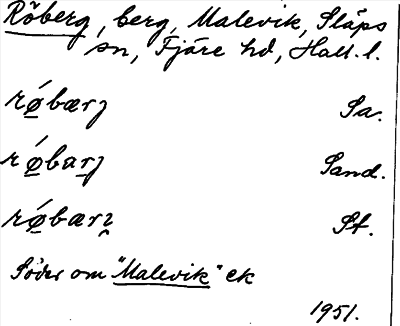 Röberg, berg, Malevik, Släps
sn, Fjäre hd, Hall. l.
rǿ̱bærj Sa.
rǿ̱ba̱rj Sand.
rǿ̱bærı St.
Söder om "Malevik" ek
1951.